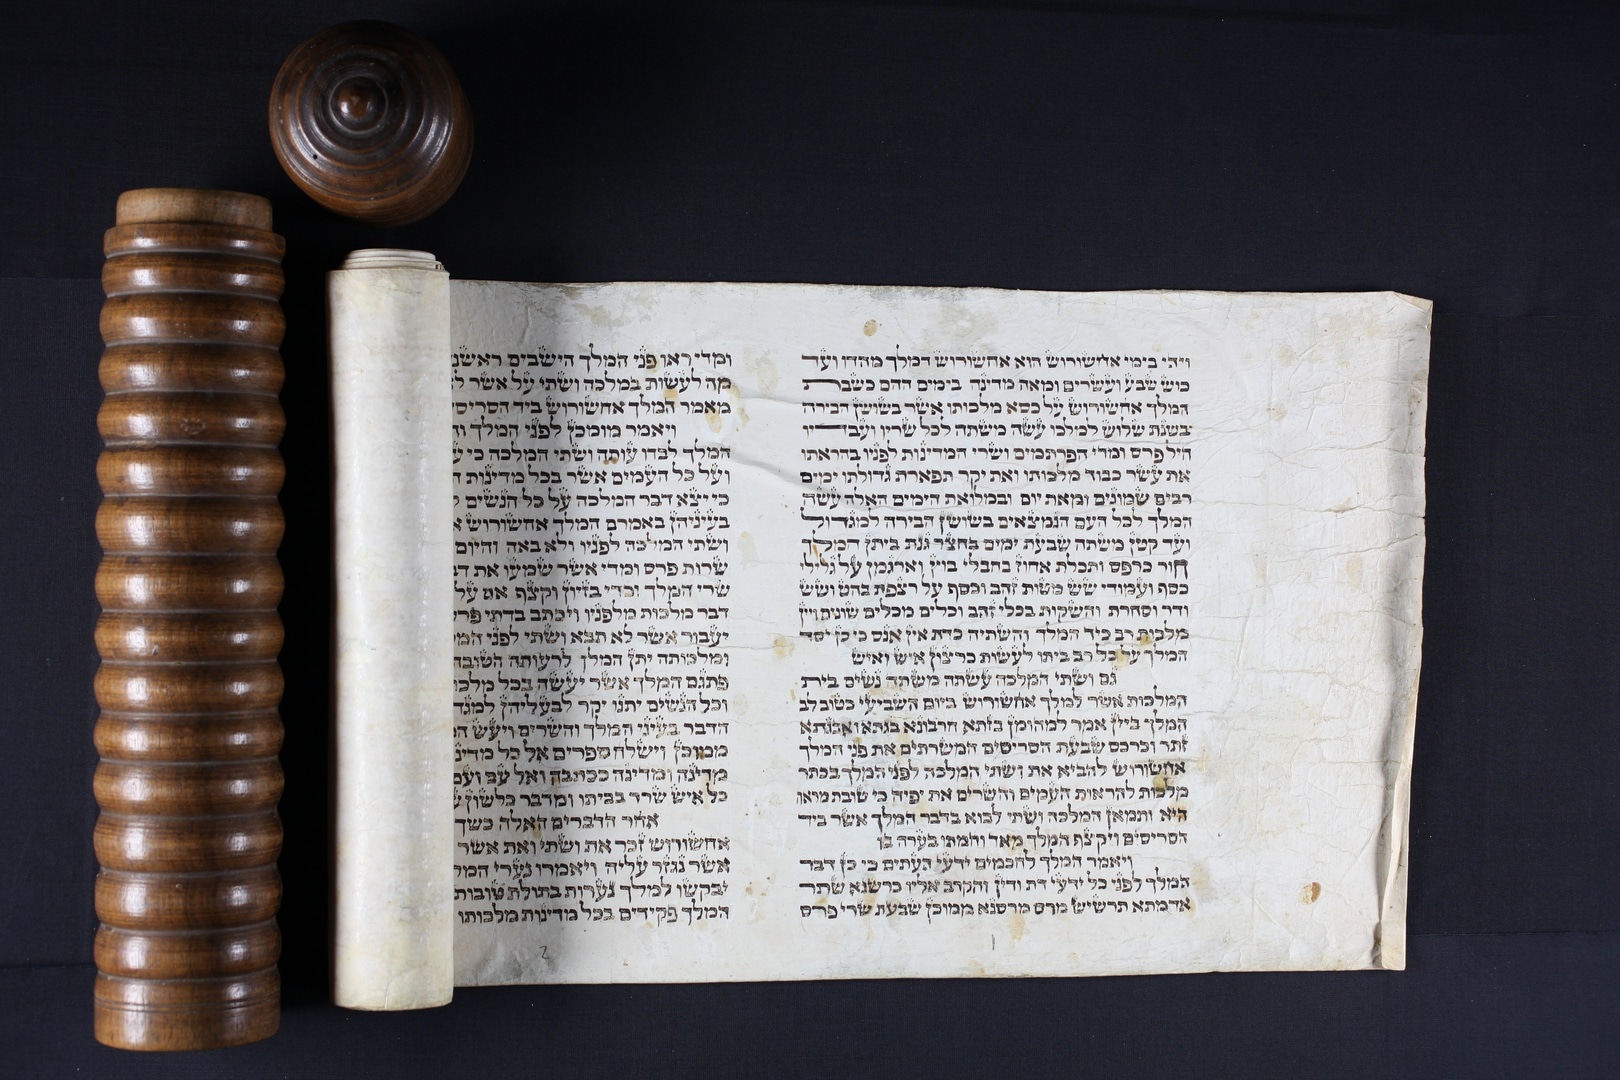 ויהי בימי אחשורוש הוא אחשורוש המלך מהדו ועד
כוש שבע ועשרים ומאה מדינה בימים ההם כשבת
המלך אחשורוש על כסא מלכותו אשר בשושן הבירה
בשנת שלוש למלכו עשה משתה לכל שריו ועבדיו
חיל פרס ומדי הפרתמים ושרי המדינות לפניו בהראתו
את עשר כבוד מלכותו ואת יקר תפארת גדולתו ימים
רבים שמונים ומאת יום ובמלואת הימים האלה עשה
המלך לכל העם הנמצאים בשושן הבירה למגדול
ועד קטן משתה שבעת ימים בחצר גנת ביתן המלך
חור כרפס ותכלת אחוז בחבלי בוץ וארגמן על גלילי
כסף ועמודי שש מטות זהב וכסף על רצפת בהט ושש
ודר וסחרת והשקות בכלי זהב וכלים מכלים שונים ויין
מלכות רב כיד המלך והשתיה כדת אין אנס כי כן יסד
המלך על כל רב ביתו לעשות כרצון איש ואיש
גם ושתי המלכה עשתה משתה נשים בית
המלכות אשר למלך אחשורוש ביום השביעי כטוב לב
המלך ביין אמר למהומן בזתא חרבונא בגתא ואבגתא
זתר וכרכס שבעת הסריסים המשרתים את פני המלך
אחשורוש להביא את ושתי המלכה לפני המלך בכתר
מלכות להראות העמים והשרים את יפיה כי טובת מראה
היא ותמאן המלכה ושתי לבוא בדבר המלך אשר ביד
הסריסים ויקצף המלך מאד וחמתו בערה בו
ויאמר המלך לחכמים ידעי העתים כי כן דבר
המלך לפני כל ידעי דת ודין והקרב אליו כרשנא שתר
אדמתא תרשיש מרס מרסנא ממוכן שבעת שרי פרס
1
ומדי ראו פני המלך הישבים ראשנ
מה לעשות במלכה ושתי על אשר ל
מאמר המלך אחשורוש ביד הסריס
ויאמר מומכן לפני המלך וה
המלך לבדו עותה ושתי המלכה כי ע
ועל כל העמים אשר בכל מדינות ה
כי יצא דבר המלכה על כל הנשים ל
בעיניהן באמרם המלך אחשורוש א
ושתי המלכה לפניו ולא באה והיום
שרות פרס ומדי אשר שמעו את ד
שרי המלך וכדי בזיון וקצף אם על
דבר מלכות מלפניו ויכתב בדתי פר
יעבור אשר לא תבא ושתי לפני המ
ומלכותה יתן המלך לרעותה הטובה
פתגם המלך אשר יעשה בכל מלכ
וכל הנשים יתנו יקר לבעליהן למגד
הדבר בעיני המלך והשרים ויעש המ
ממוכן וישלח ספרים אל כל מדינ
מדינה ומדינה ככתבה ואל עם ועם
כל איש שרר בביתו ומדבר כלשון ע
אחר הדברים האלה כשך
אחשורוש זכר את ושתי ואת אשר
אשר נגזר עליה ויאמרו נערי המל
יבקשו למלך נערות בתולת טובות
המלך פקידים בכל מדינות מלכותו
2